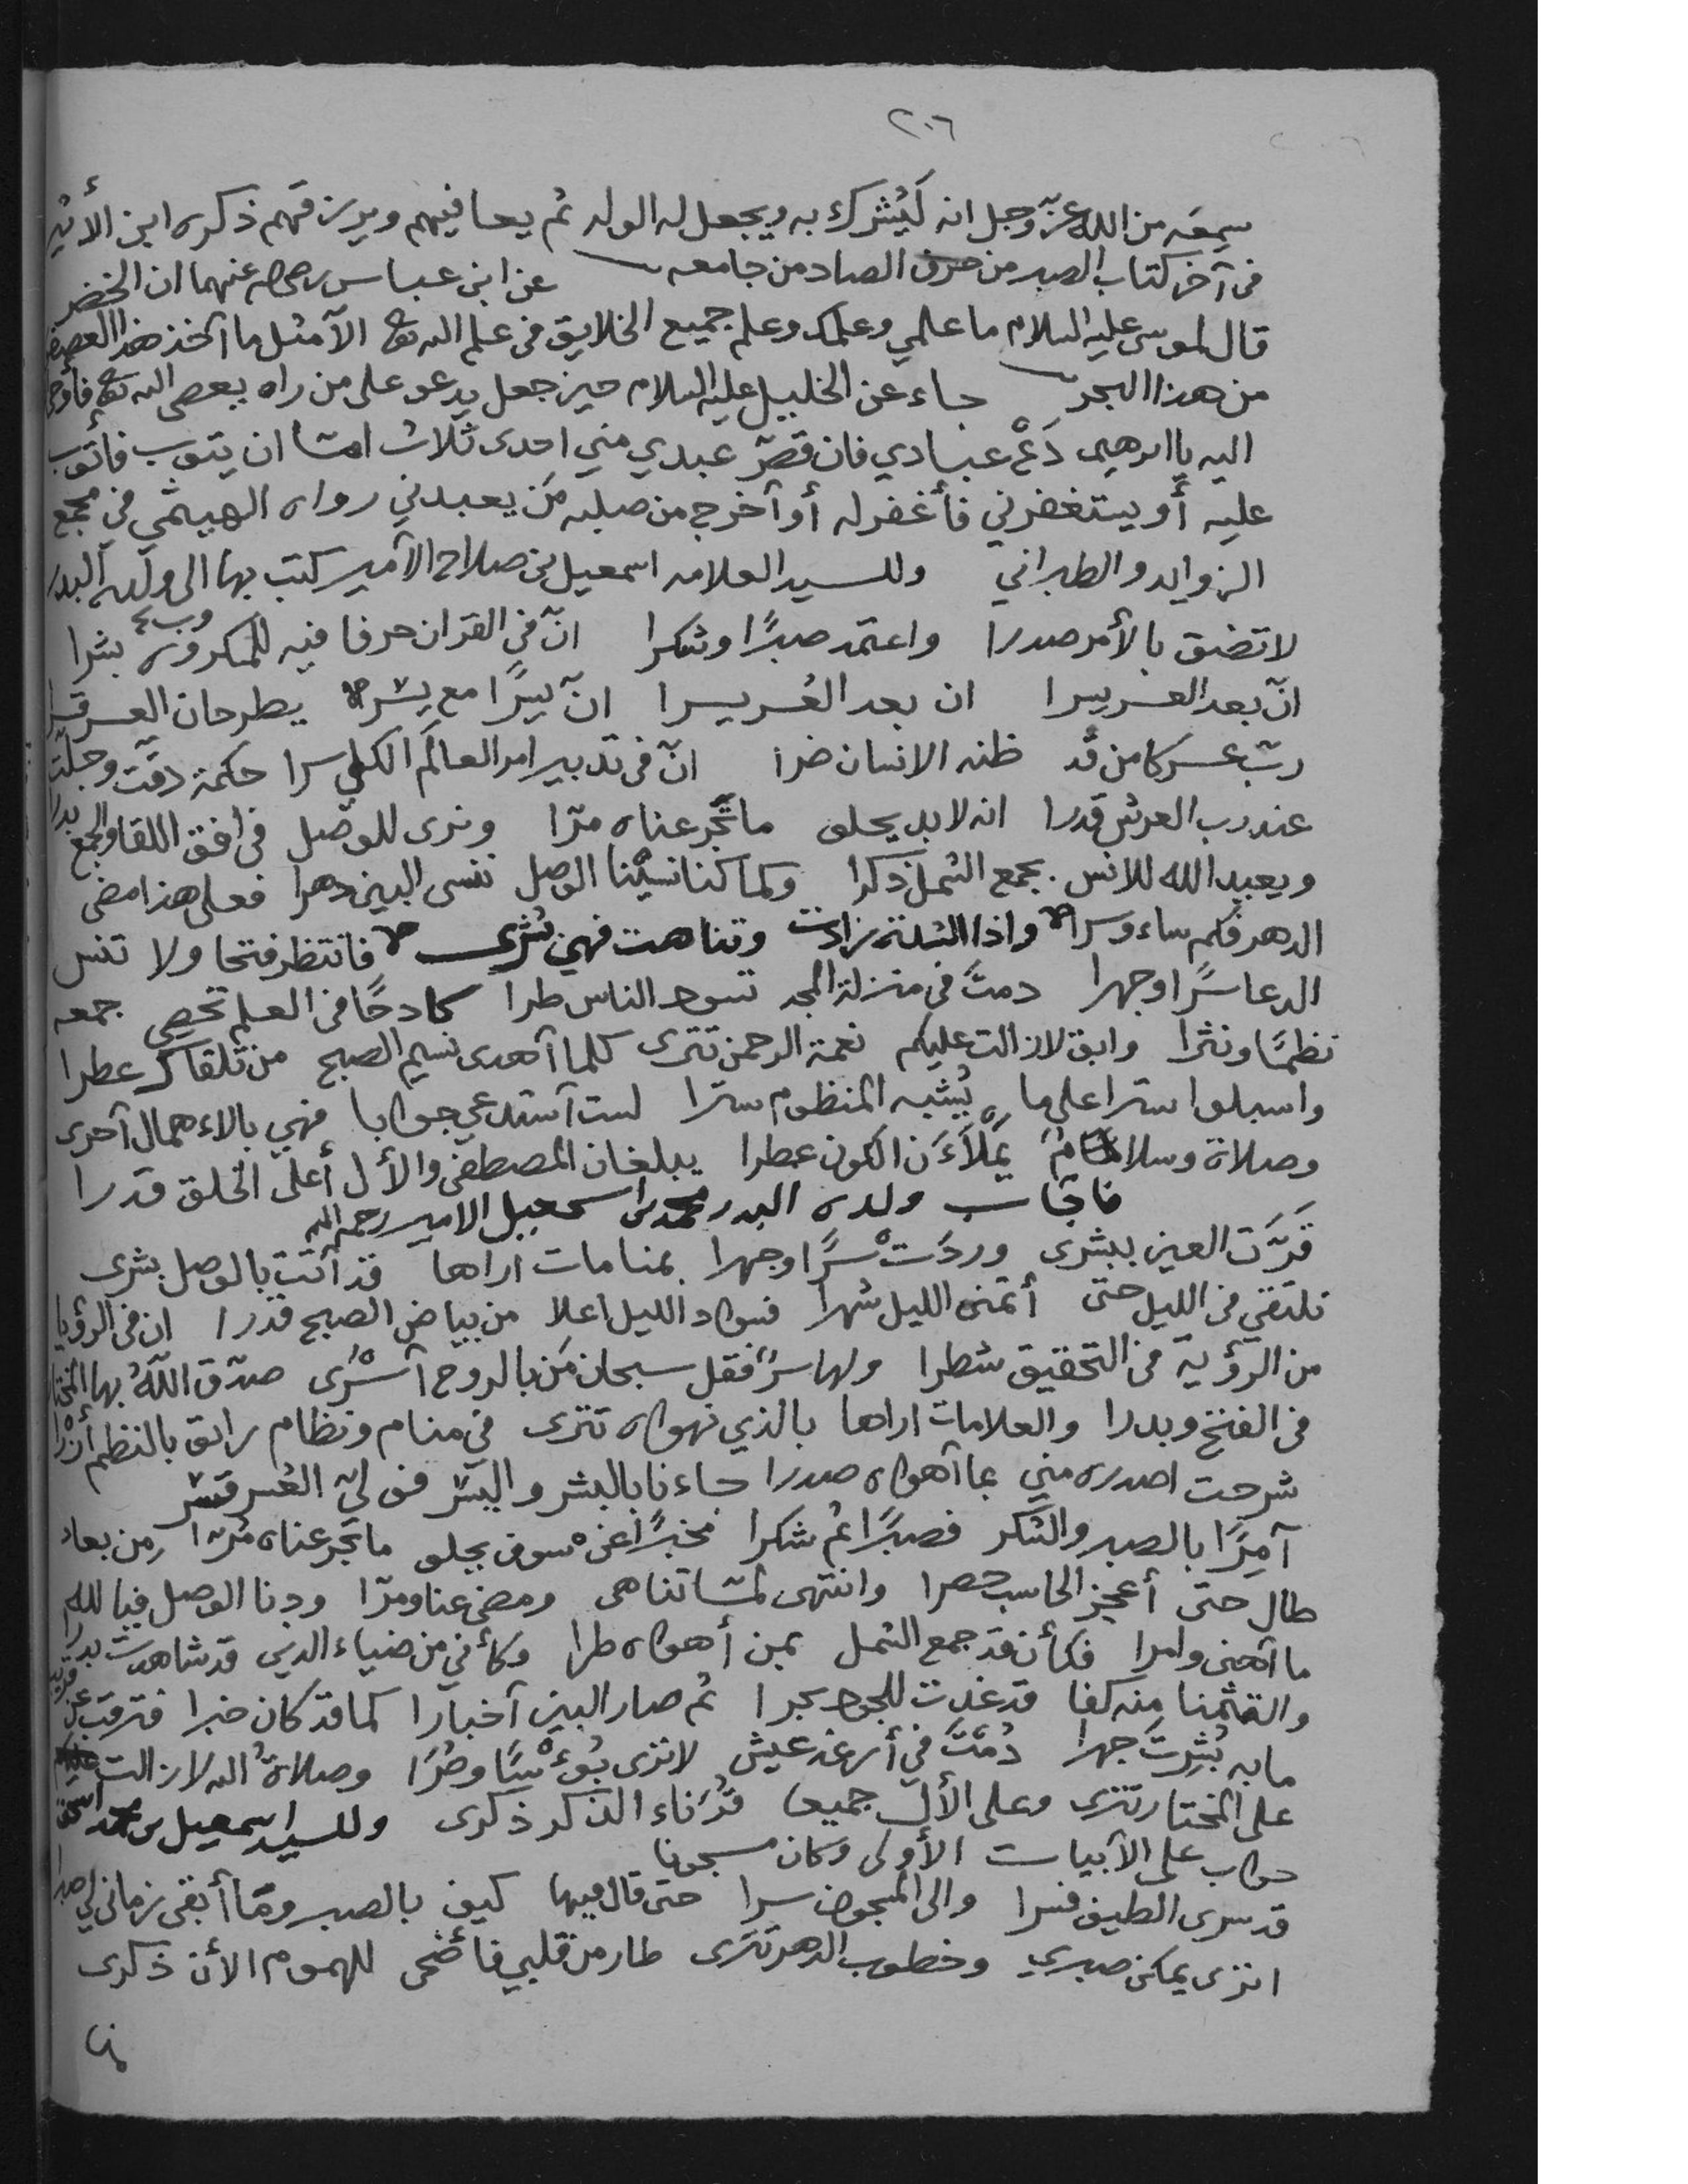 ٢٠٦
سمعه من الله عزّ وجل انه لَيُشرك به ويجعل له الولد ثم يعافيهم ويرزقهم ذكره ابن الأثير
فى آخر كتاب الصبر من حرف الصاد من جامعه عن ابن عباس رضى الله عنهما ان الخضر
قال لموسى عليه السلام ما علمي وعلمك وعلم جميع الخلايق فى علم الله تعالى الآ مثل ما اخذ هذا العصفور
من هذا البحر جاء عن الخليل عليه السلام حين جعل يدعو على من راه يعصى الله تعالى فأوحى
اليه يا ابرهيم دَعْ عبادي فان قصرَ عبدي مني احدى ثلاث امّا ان يتوب فأتوب
عليه أو يستغفرني فأغفر له أو آخرج من صلبه مَن يعبدني رواه الهيثمي في مجمع
الزوايد والطبراني وللسيد العلامه اسمعيل بن صلاح الآمير كتب بها الى ولده البدر
لا تضق بالأمر صدرا واعتمد صبرًا وشكرا انّ فى القران حرفا فيه للمكروب بشرا
انّ بعد العسر يسرا ان بعد العُسر يسرا انّ يسرًا مع يسر يطرحان العسر قسرا
ربّ عسر كامن قد ظنه الانسان ضرا انّ فى تدبير امر العالَم الكلي سرا حكمة دقّت وجلّت
عند رب العرش قدرا انه لا بد يحلو ما تجرعناه مرّا ونرى للوصل فى افق اللقا والجمع بدرا
ويعيد الله للانس بجمع الشمل ذكرا وكما كنا نسيْنا الوصل ننسى البين دهرا فعلى هذا مضى
الدهر فكم ساء وسرا واذا الشدة زادت وتناهت فهي بشرى فانتظر فتحا ولا تنس
الدعا سرًا وجهرا دمتَ فى منزلة المجد تسود الناس طرا كادحًا فى العلم تحصي جمعه
نظمًا ونثرا وابق لا زالت عليكم نعمة الرحمن تترى كلما آهدى نسيم الصبح من تلقاك عطرا
واسبلوا سترا على ما يُشبه المنظوم سترا لست آستدعي جوابا فهي بالاءهمال آحرى
وصلاة وسلام يَمْلآَءَن الكون عطرا يبلغان المصطفى والأل أعلى الخلق قدرا
فاجاب ولده البدر محمد بن اسمعيل الامير رحمه الله
قَرَّت العين ببشرى وردَتْ سرًا وجهرا بمنامات اراها قد آتَت بالوصل بشرى
نلتقي فى الليل حتى أتمنى الليل شهرا فسواد الليل اعلا من بياض الصبح قدرا ان فى الرؤيا
من الرؤية فى التحقيق شطرا ولها سرّ فقل سبحان مَن بالروح آسْرى صدّق اللهُ بها المختار
فى الفتح وبدرا والعلامات اراها بالذي نهواه تترى في منام ونظام رائق بالنظم أزرا
شرحت اصدره مني بما آهواه صدرا جاءنا بالبشر واليسر فولىّ العُسر قسرا
آمرًا بالصبر والشكر فصبرًا ثم شكرا مخبرًا عن سوف يحلو ما تجرعناه مُرّا من بعاد
طال حتى أعجز الحاسب حصرا وانتهى لمّا تناهى ومضى عنا ومرّا ودنا الوصل فيا لله
ما آهنى وامرا فكأن قد جمع الشمل بمن أهواه طرا وكأني من ضياء الدين قد شاهدت بدرا
والتثمنا منه كفا قد غدت للجود بحرا ثم صار البين آخبارا كما قد كان خبرا فترقب عن قريب
ما به بُشِرتَ جهرا دُمْتَ في أرغد عيش لا ترى بُوءْسًا وضُرّا وصلاةُ الله لا زالت
على المختار تترى وعلى الألّ جميعا قُرَناء الذكر ذكرى وللسيد اسمعيل بن محمد اسحق
جواب على الآبيات الأولى وكان مسجونا
قد سرى الطيف فسرا والى المسجون سرا حتى قال فيها كيف بالصبر وما أبقى زماني لي صبرا
اترى يمكن صبري وخطوب الدهر تترى طار من قلبي فأضحى للهموم الأن ذكرى